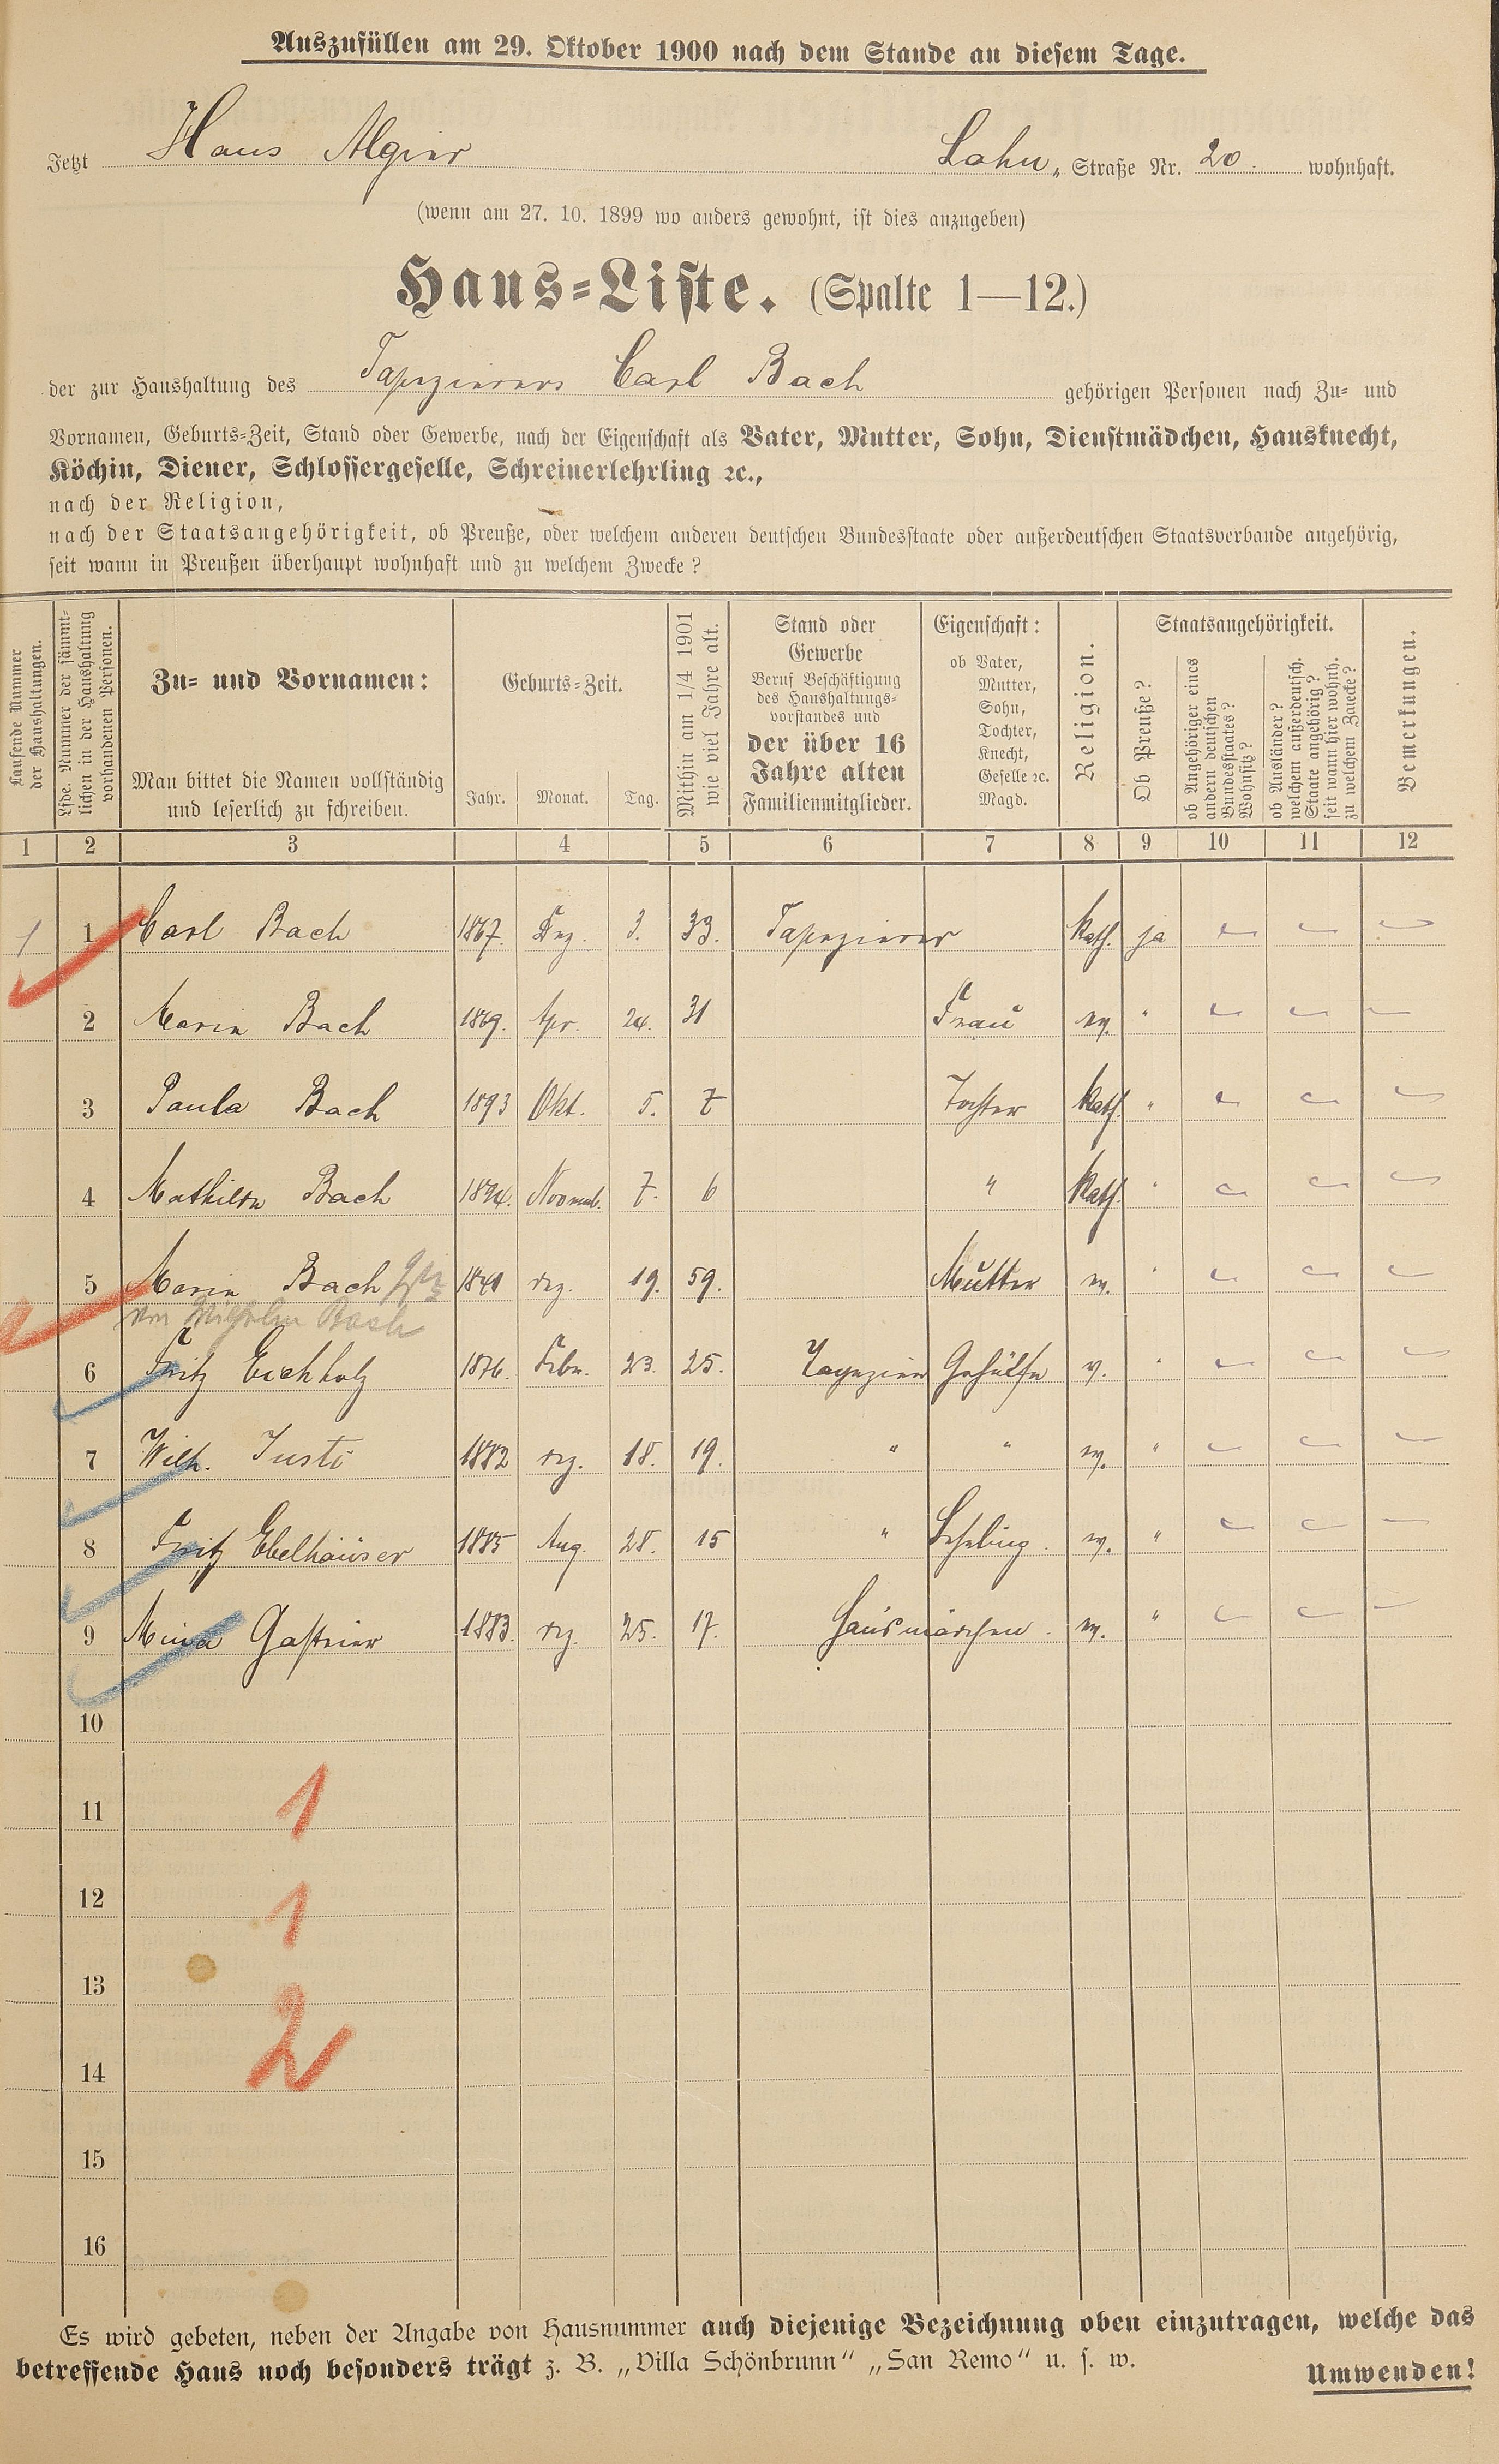 Auszufüllen am 29. Oktober 1900 nach dem Stande an diesem Tage.
Jetzt Haus Algier Lahn„ Straße Nr. 20. wohnhaft.
(wenn am 27. 10. 1899 wo anders gewohnt, ist dies anzugeben)
Haus-Liste. (Spalte 1—12.)
der zur Haushaltung des Tapezierers Carl Bach gehörigen Personen nach Zu- und
Vornamen, Geburts-Zeit, Stand oder Gewerbe, nach der Eigenschaft als Vater, Mutter, Sohn, Dienstmädchen, Hausknecht,
Köchin, Diener, Schlossergeselle, Schreinerlehrling ꝛc.,
nach der Religion,
nach der Staatsangehörigkeit, ob Preuße, oder welchem anderen deutschen Bundesstaate oder außerdeutschen Staatsverbande angehörig,
seit wann in Preußen überhaupt wohnhaft und zu welchem Zwecke?
Laufende Nummer
der Haushaltungen.
Lfde. Nummer der sämmt-
lichen in der Haushaltung
vorhandenen Personen.
Zu- und Vornamen:
Man bittet die Namen vollständig
und leserlich zu schreiben.
Geburts-Zeit.
Jahr. Monat. Tag.
Mithin am 1/4 1901
wie viel Jahre alt.
Stand oder
Gewerbe
Beruf Beschäftigung
des Haushaltungs-
vorstandes und
der über 16
Jahre alten
Familienmitglieder.
Eigenschaft:
ob Vater,
Mutter,
Sohn,
Tochter,
Knecht,
Geselle ꝛc.
Magd.
Religion.
Staatsangehörigkeit.
Ob Preuße?
ob Angehöriger eines
andern deutschen
Bundesstaates?
Wohnsitz?
ob Ausländer?
welchem außerdeutsch.
Staate angehörig?
seit wann hier wohnh.
zu welchem Zwecke?
Bemerkungen.
1 2 3 4 5 6 7 8 9 10 11 12
1 1 Carl Bach 1867. Dez. 3. 33. Tapezierer Kath. ja
2 Marie Bach 1869. Apr. 24. 31 Frau ev. "
3 Paula Bach 1893 Okt. 5. 7 Tochter Kath. "
4 Mathilde Bach 1894. Novemb. 7. 6 " Kath. "
5 Marie Bach 1841 Dez. 19. 59. Mutter ev. "
von Wilhelm Bach
6 Fritz Eichholz 1876. Febr. 23. 25. Tapezier Gehülfe ev. "
7 Wilh. Justi 1882 Dez. 18. 19. " " ev. "
8 Fritz Ebelhäuser 1885 Aug. 28. 15 " Lehrling. ev. "
9 Mina Gastrier 1883. Dez. 25. 17. Hausmädchen. ev. "
10
11 1
12 1
13
14 2
15
16
Es wird gebeten, neben der Angabe von Hausnummer auch diejenige Bezeichnung oben einzutragen, welche das
betreffende Haus noch besonders trägt z. B. „Villa Schönbrunn" „San Remo" u. s. w.
Umwenden!